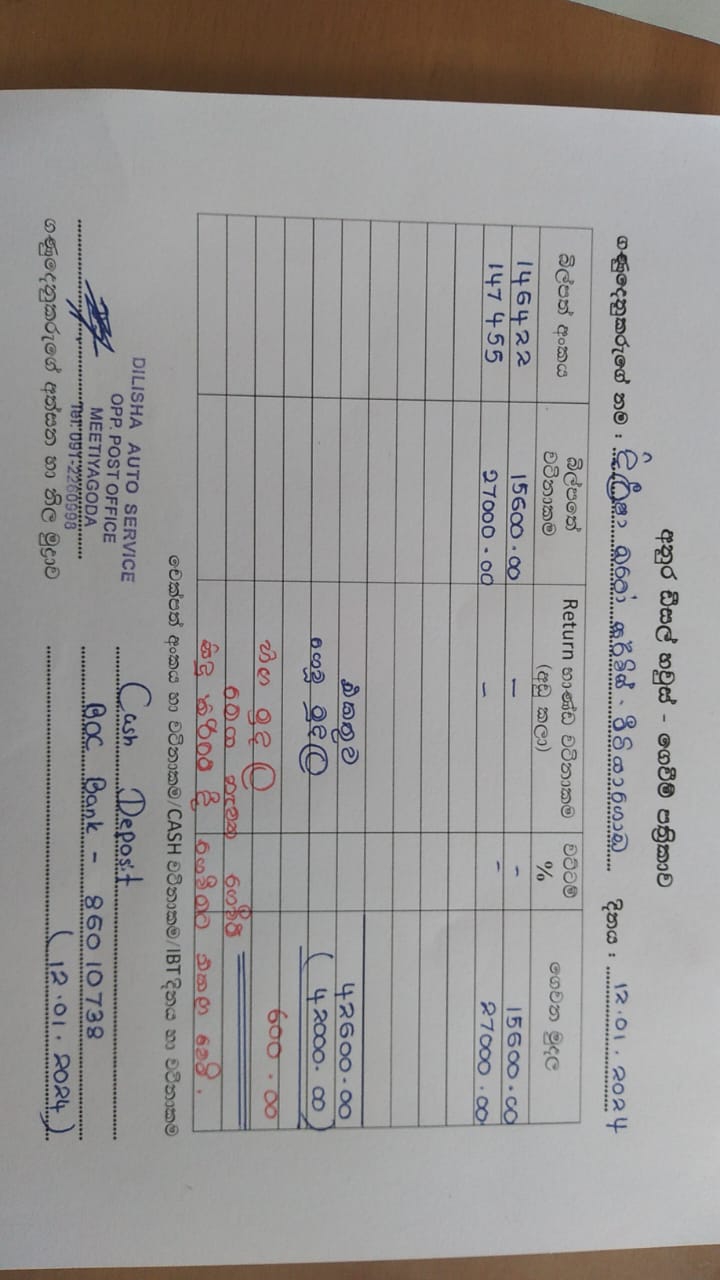 අනුර ඩීසල් හවුස් - ගෙවීම් පත්‍රිකාව
ගණුදෙනුකරුගේ නම : දිලීෂා ඔටෝ සර්විස් - මීටියාගොඩ දිනය : 12.01.2024
බිල්පත් අංකය බිල්පතේ වටිනාකම Return භාණ්ඩ වටිනාකම (අඩු කලා) වට්ටම් % ගෙවන මුදල
146422 15600.00 - - 15600.00
147455 27000.00 - - 27000.00
එකතුව 42600.00
ගෙවූ මුදල (42000.00)
හිඟ මුදල 600.00
ගෙවීම
සිදු කිරීමේ දී ගෙවීමට එකතු වේ.
චෙක්පත් අංකය හා වටිනාකම/CASH වටිනාකම/IBT දිනය හා වටිනාකම
DILISHA AUTO SERVICE
OPP. POST OFFICE
MEETIYAGODA
Tel: 091-2260998
Cash Deposit
BOC Bank - 86010738
(12.01.2024)
ගණුදෙනුකරුගේ අත්සන හා නිල මුද්‍රාව